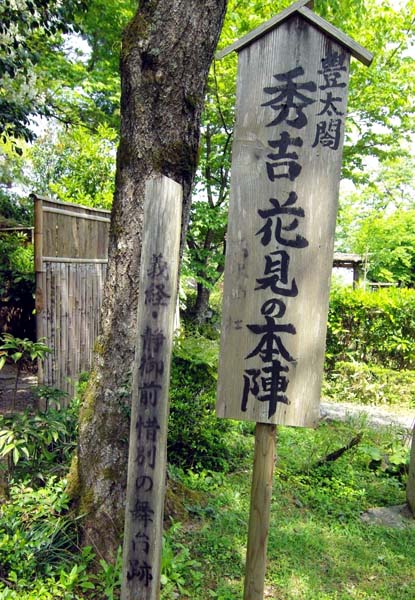 豊太閤
秀吉花見の本陣
義経・静御前惜別の舞台跡